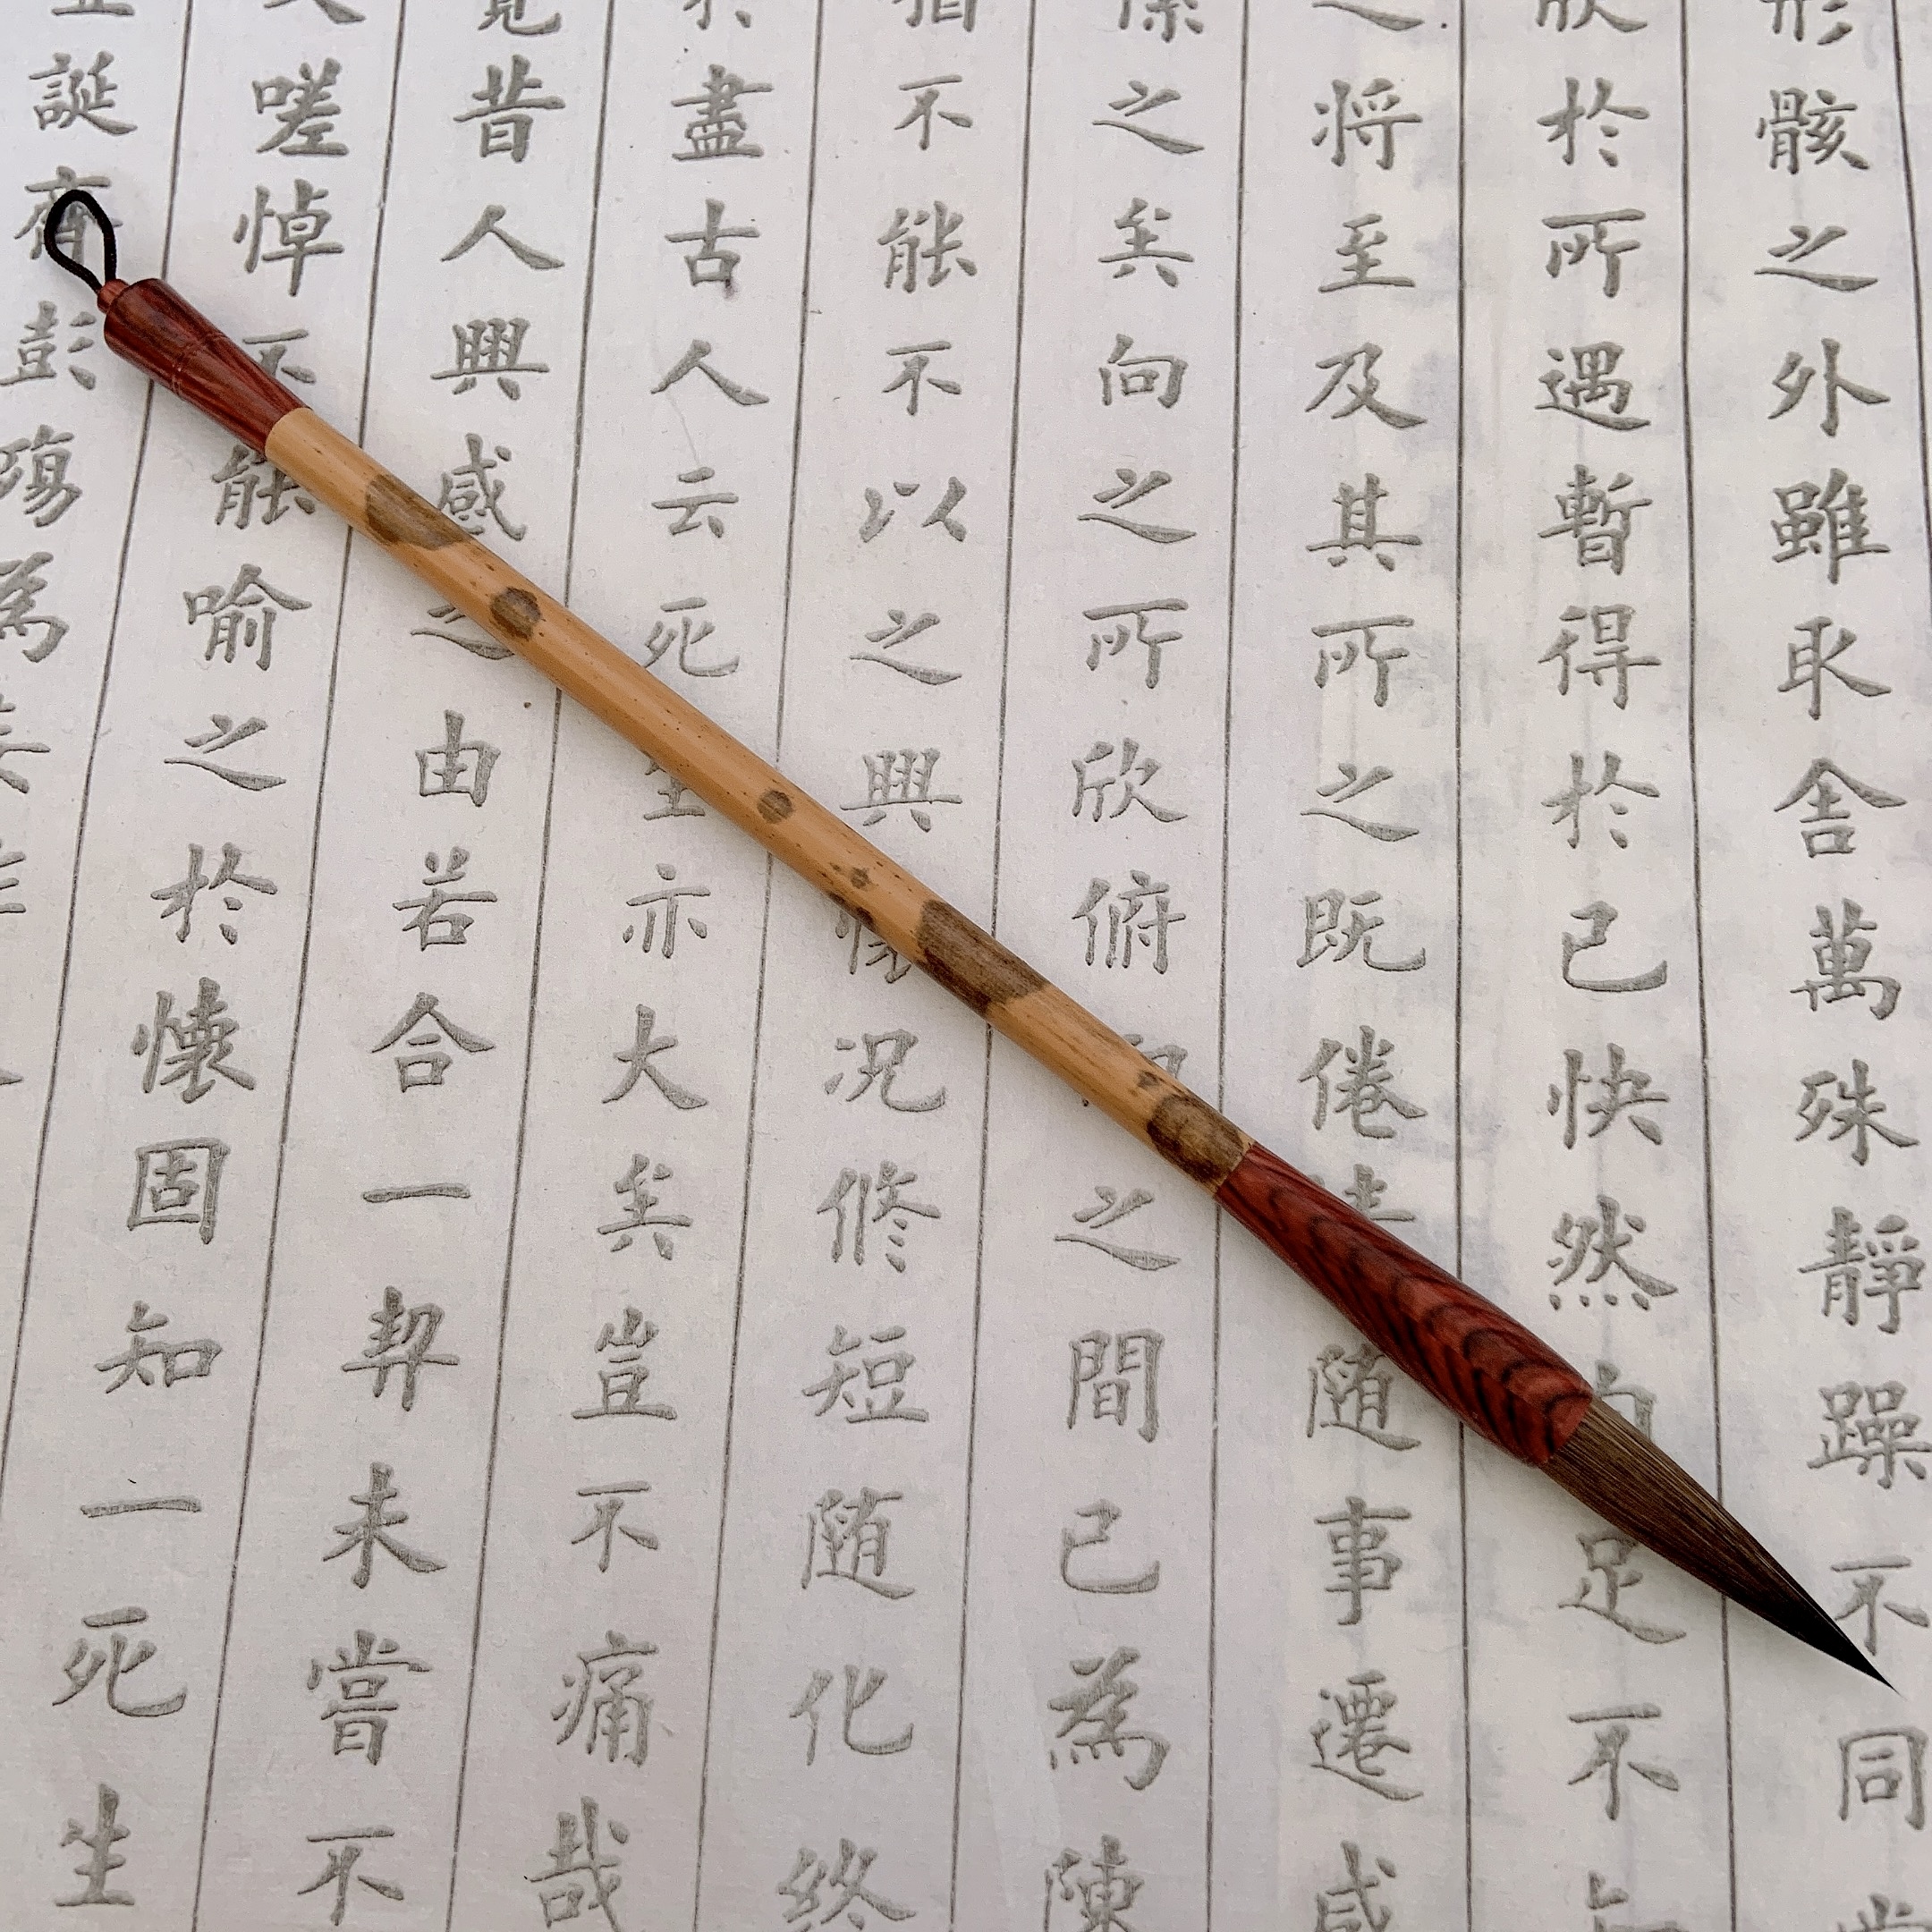 形骸之外雖取舍萬殊靜躁不同
欣於所遇暫得於己快然自足不知
之将至及其所之既倦情随事遷感
係之矣向之所欣俯仰之間已為陳
猶不能不以之興懷况修短随化終
於盡古人云死生亦大矣豈不痛哉
覽昔人興感之由若合一契未嘗不
文嗟悼不能喻之於懷固知一死生
誕齊彭殤為妄作